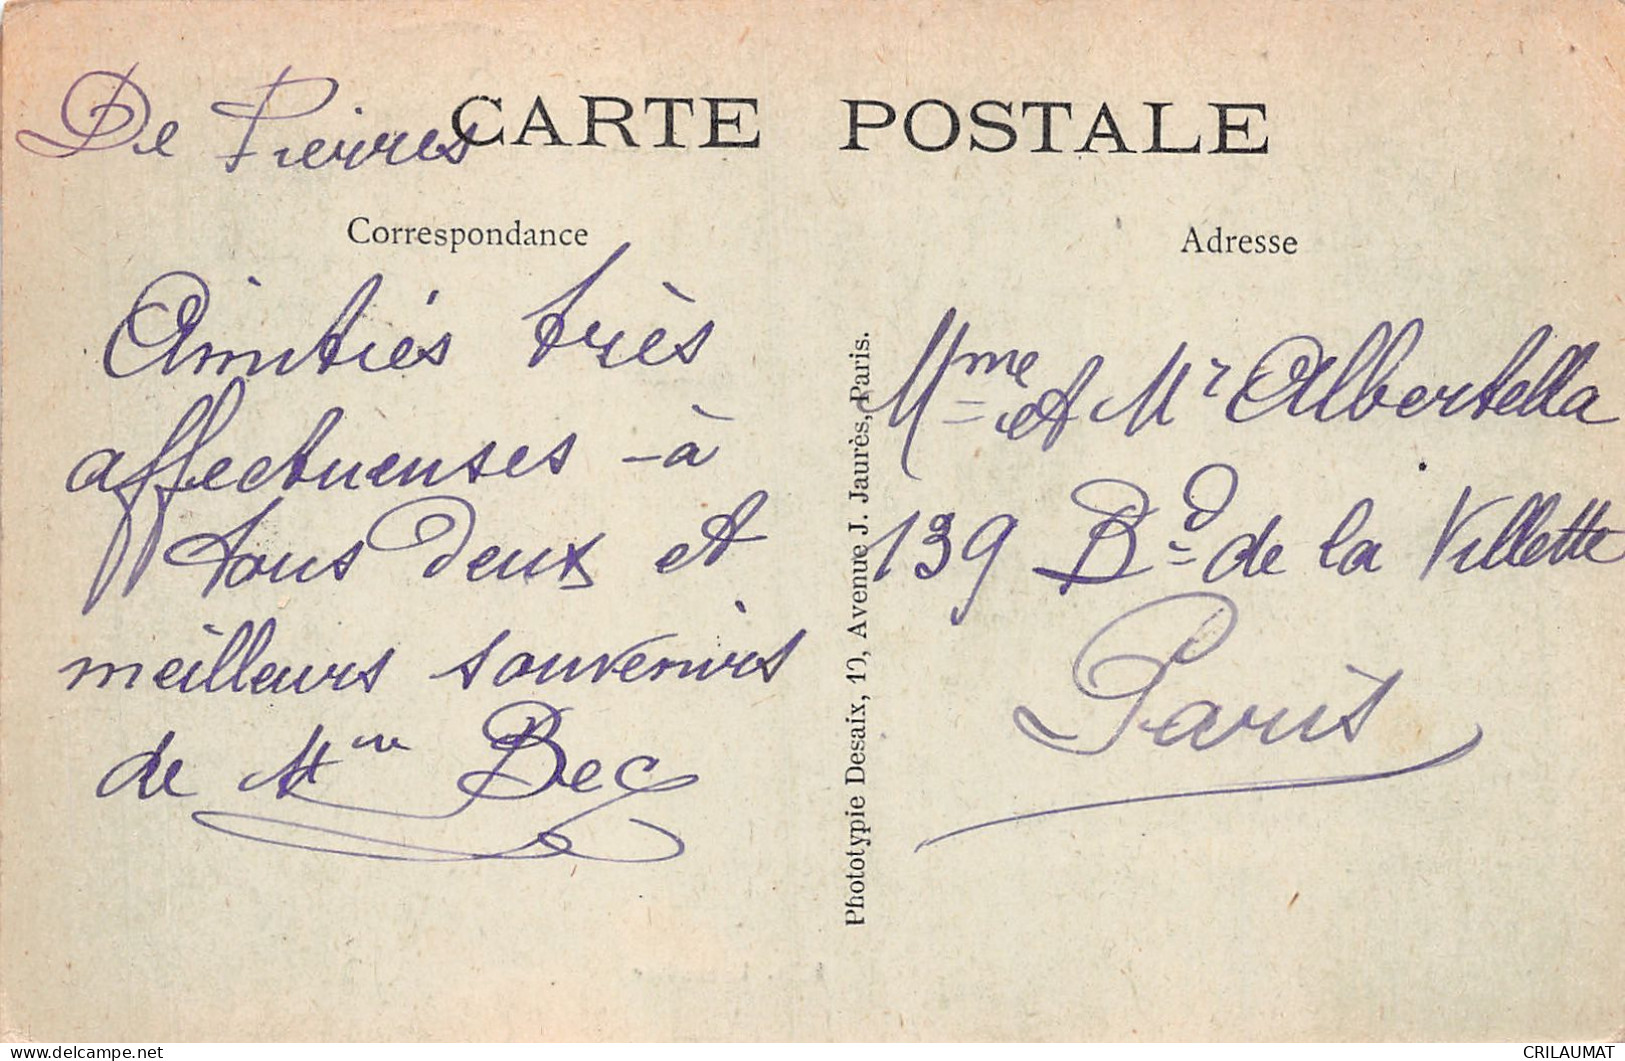 De Pierres
CARTE POSTALE
Correspondance
Amitiés très
affectueuses - à
tous deux et
meilleurs souvenirs
de Mme Bec
Phototypie Desaix, 10, Avenue J. Jaurès, Paris.
Adresse
Mme et Mr Albertella
139 Bd de la Villette
Paris
delcampe.net
CRILAUMAT